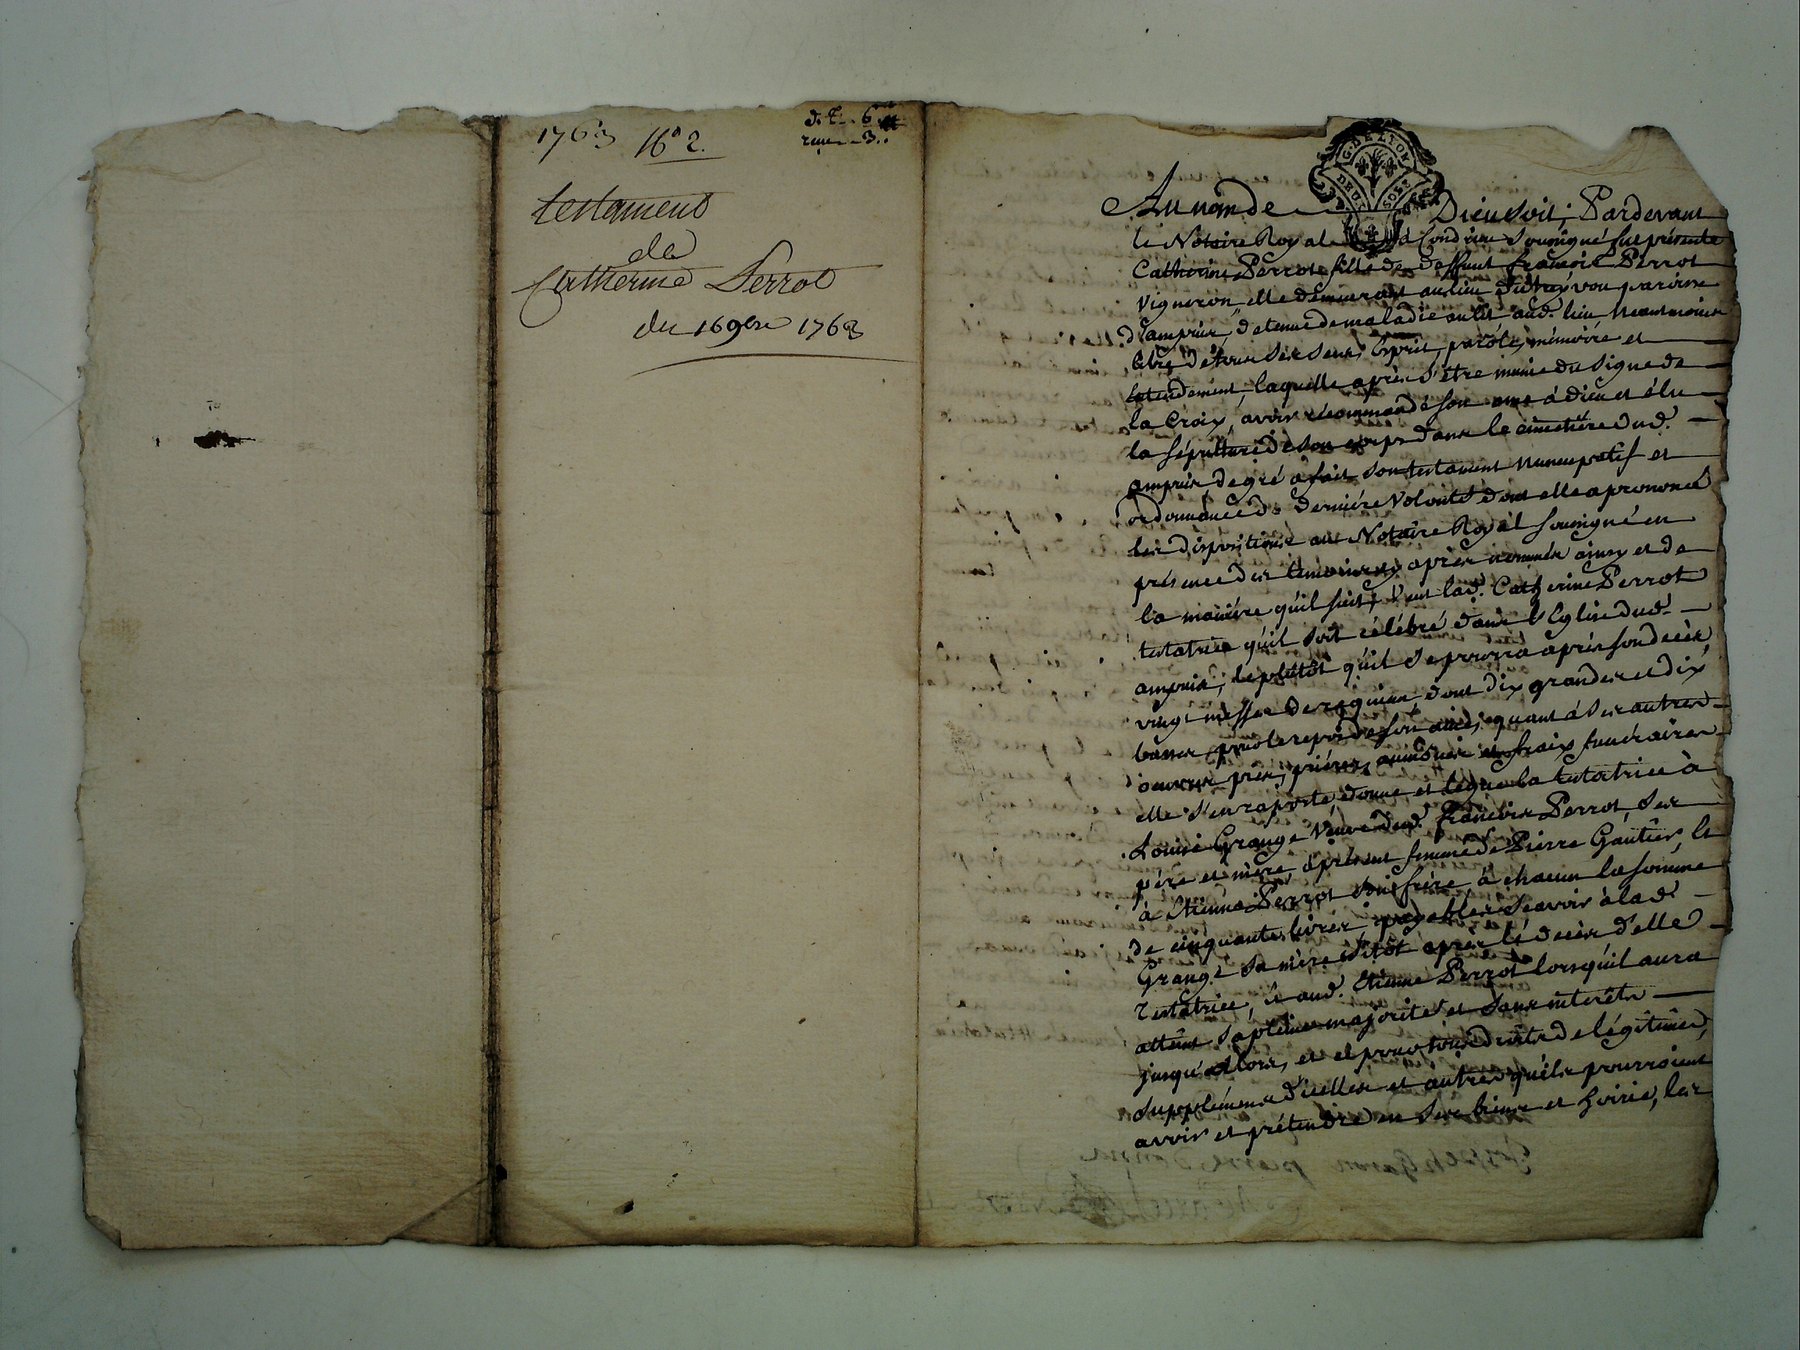 1763 16e 2.
d. t. 6
reçu 3..
testament
de
Catherine Perrot
du 16 9bre 1763
G. DE LYON
DEUX SOLS
Au nom de Dieu soit; Pardevant
le Notaire Royal à Condrieu soussigné fut présente
Catherine Perrot fille de deffunt françois Perrot
vigneron, elle demeurant au lieu de vou paroisse
d'ampuis, detenue de maladie au lit aud. lieu neantmoins
libre de tous ses sens, esprit, parole, mémoire et
Entendement, laquelle après s'être munie du signe de
la Croix, avoir récommandé son ame à dieu et élu
la sépulture de son corps dans le cimetière dud.
ampuis de gré a fait son testament Nuncupatif et
ordonnance de derniére volonté dont elle a prononcé
les dispositions au Notaire Royal soussigné en
présence des témoins cy après nommés ainsy et de
la maniére qu'il suit; Veut lad. Catherine Perrot
testatrice qu'il soit célébré dans l'Eglise dud.
ampuis, le plutôt qu'il se pourra après son decès
vingt messes de requiem, dont dix grandes et dix
basses, pour le repos de son ame; quant à ses autres
oeuvres pies, priéres, aumônes et fraix funéraires
elle s'en raporte, donne et légue la testatrice à
Louise Grange Veuve dud. françois Perrot, ses
père et mère, àprésent femme de Pierre Gautier, et
à Etienne Perrot son frère, à chacun la somme
de cinquante livres, payables sçavoir à lad.
Grange sa mère sitôt après le decès d'elle
Testatrice, et aud. Etienne Perrot lorsqu'il aura
atteint sa pleine majorité et sans intérêts
jusqu'alors, et ce pour tous droits de légitime,
supplément d'icelles et autres qu'ils pourroient
avoir et prétendre en ses biens et hoirie, les